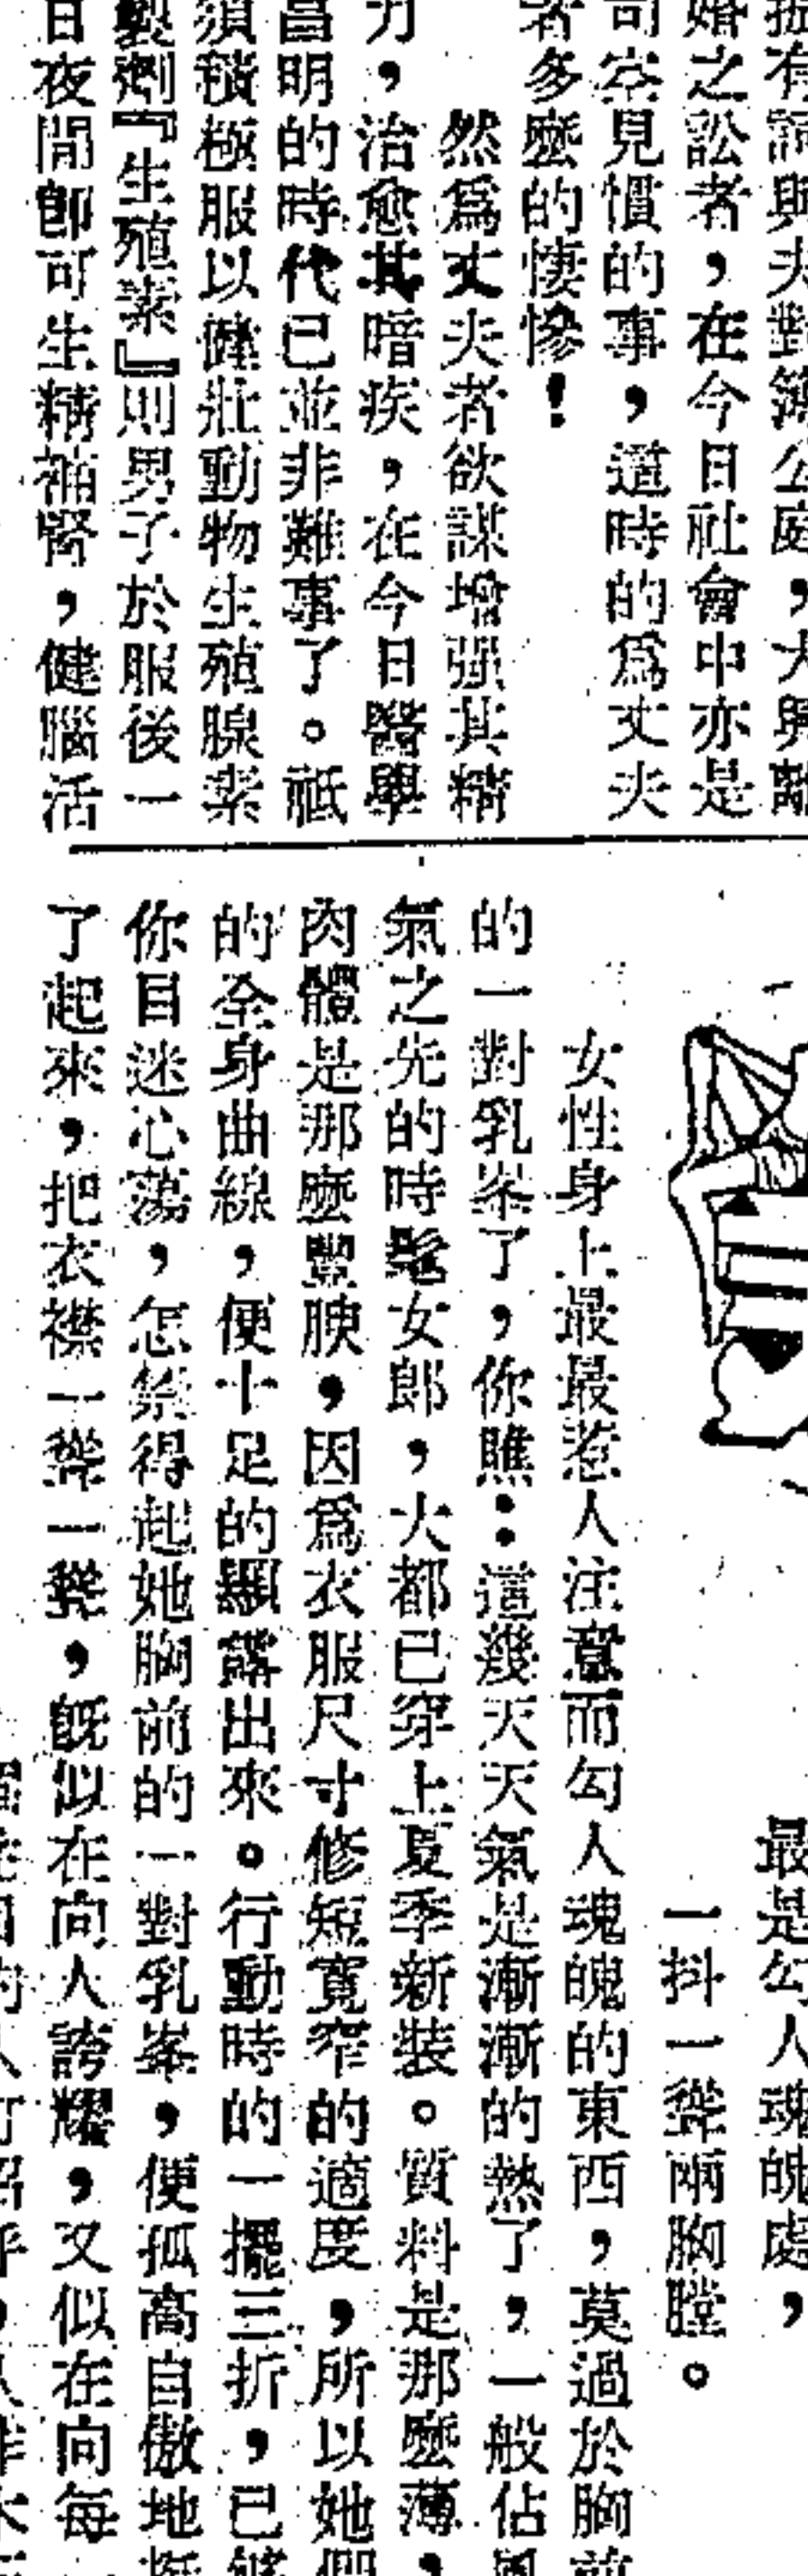 有詞與夫對簿公庭，大興離
婚之訟者，在今日社會中亦是
司空見慣的事，這時的爲丈夫
者多麼的悽慘！
然爲丈夫者欲謀增强其精
力，治愈其暗疾，在今日醫學
昌明的時代已並非難事了。祗
須積極服以健壯動物生殖腺素
製劑『生殖素』則男子於服後一
日夜間卽可生精補腎，健腦活
最是勾人魂魄處，
一抖一聳兩胸膛。
女性身上最最惹人注意而勾人魂魄的東西，莫過於胸前
的一對乳峯了，你瞧：這幾天天氣是漸漸的熱了，一般佔風
氣之先的時髦女郎，大都已穿上夏季新裝。質料是那麼薄，
肉體是那麼豐腴，因爲衣服尺寸修短寬窄的適度，所以她們
的全身曲線，便十足的顯露出來。行動時的一擺三折，已够
你目迷心蕩，怎禁得起她胸前的一對乳峯，便孤高自傲地挺
了起來，把衣襟一聳一聳，旣似在向人誇耀，又似在向每